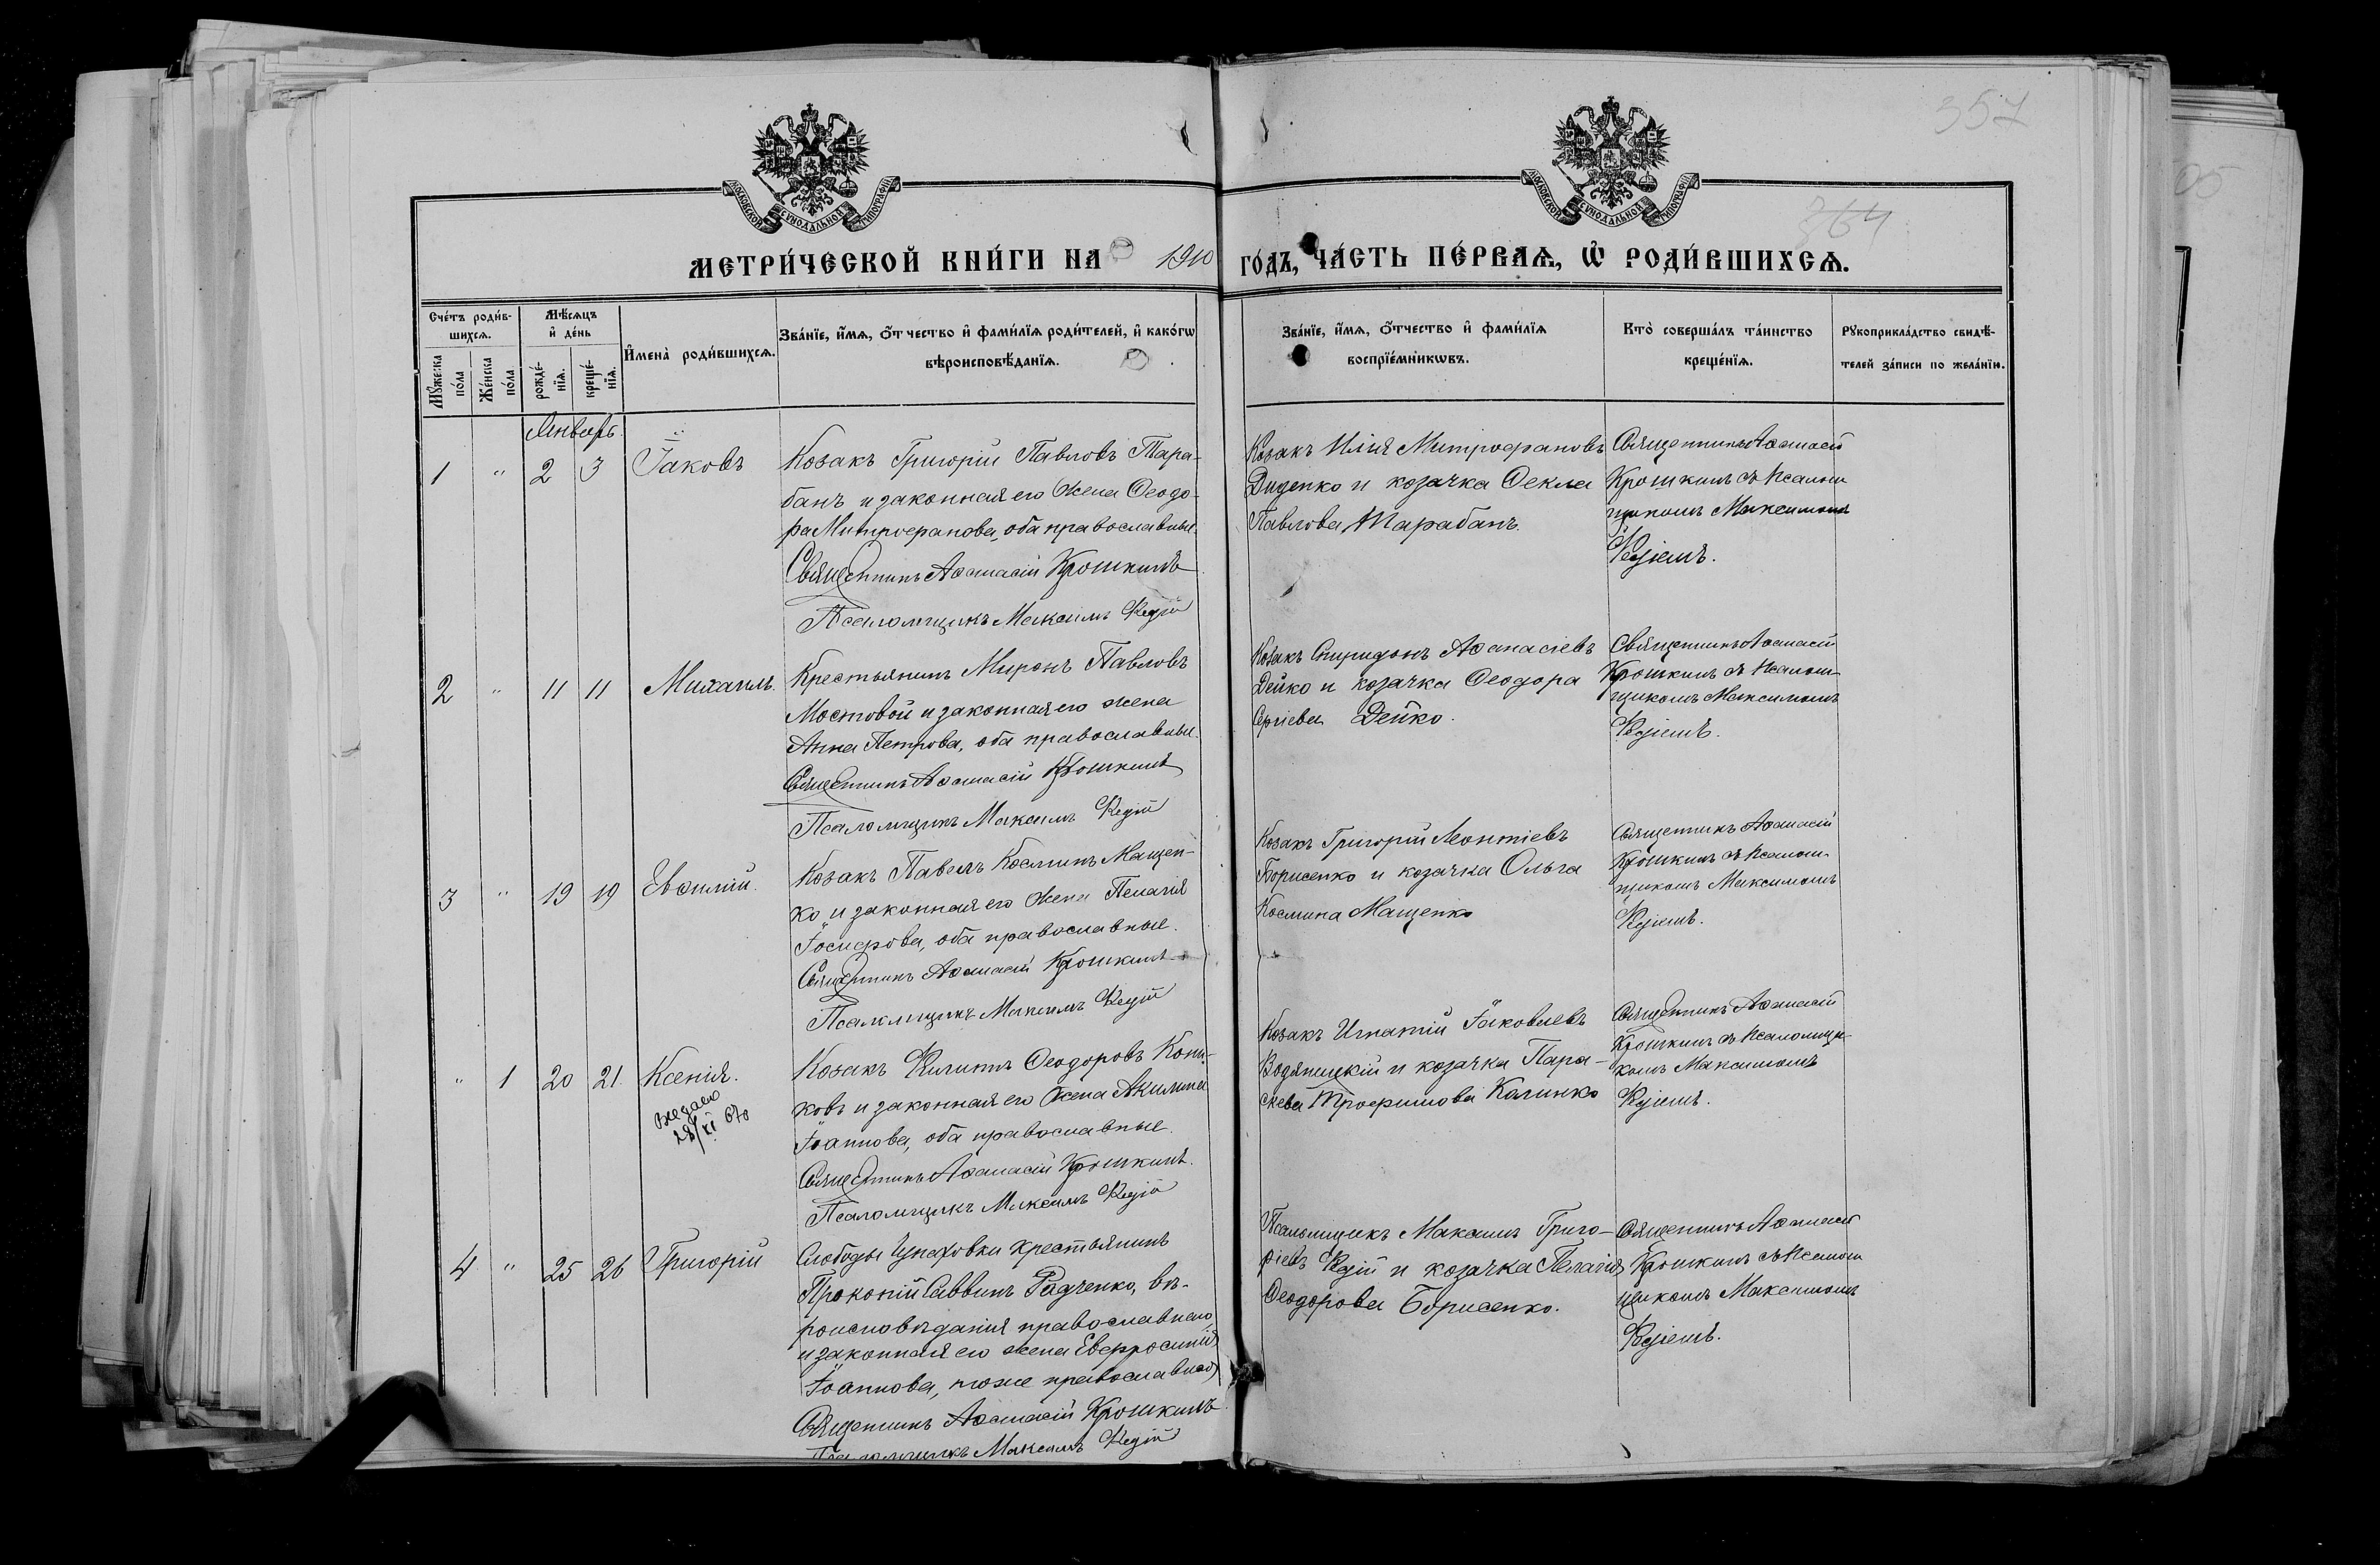 357
364
МОСКОВСКОЙ СУНОДАЛЬНОЙ ТИПОГРАФІИ
МОСКОВСКОЙ СУНОДАЛЬНОЙ ТИПОГРАФІИ
МЕТРИ́ЧЕСКОЙ КНИ́ГИ НА 1910 ГО́ДЪ, ЧА́СТЬ ПЕ́РВАѦ, Ѡ҆ РОДИ́ВШИХСѦ.
Сче́тъ роди́в-
шихсѧ.
Мꙋ́жеска по́ла
Же́нска по́ла
Мѣ́сѧцъ
и҆ де́нь
рожде́-
нїѧ.
креще́-
нїѧ.
И҆мена̀ роди́вшихсѧ.
Зва́нїе, и҆́мѧ, ѻ҆́тчество и҆ фами́лїѧ роди́телей, и҆ како́гѡ
вѣроисповѣ́данїѧ.
Зва́нїе, и҆́мѧ, ѻ҆́тчество и҆ фами́лїѧ
воспрїе́мникѡвъ.
Кто̀ соверша́лъ та́инство
креще́нїѧ.
Рꙋкоприкла́дство свидѣ́-
телей за́писи по жела́нїю.
Январь.
1 " 2 3 Іаковъ
Козакъ Григорій Павловъ Тара-
банъ и законная его жена Ѳеодо-
ра Митрофанова, оба православные.
Священникъ Аѳанасій Крошкинъ
Псаломщикъ Максимъ Кезій
Козакъ Илія Митрофановъ
Диденко и козачка Ѳекла
Павлова Тарабанъ.
Священникъ Аѳанасій
Крошкинъ съ псалом-
щикомъ Максимомъ
Кезіемъ.
2 " 11 11 Михаилъ.
Крестьянинъ Миронъ Павловъ
Мостовой и законная его жена
Анна Петрова, оба православные.
Священникъ Аѳанасій Крошкинъ
Псаломщикъ Максимъ Кезій
Козакъ Спиридонъ Аѳанасіевъ
Дейко и козачка Ѳеодора
Сергіева Дейко.
Священникъ Аѳанасій
Крошкинъ съ псалом-
щикомъ Максимомъ
Кезіемъ.
3 " 19 19 Евѳимій.
Козакъ Павелъ Косминъ Мащен-
ко и законная его жена Пелагія
Іосифова, оба православные.
Священникъ Аѳанасій Крошкинъ
Псаломщикъ Максимъ Кезій
Козакъ Григорій Леонтіевъ
Борисенко и козачка Ольга
Космина Мащенко
Священникъ Аѳанасій
Крошкинъ съ псалом-
щикомъ Максимомъ
Кезіемъ.
" 1 20 21. Ксенія.
28/XI 670
Козакъ Филиппъ Ѳеодоровъ Кони-
ковъ и законная его жена Акилина
Іоаннова, оба православные.
Священникъ Аѳанасій Крошкинъ.
Псаломщикъ Максимъ Кезій
Козакъ Игнатій Іаковлевъ
Водяницкій и козачка Пара-
скева Трофимова Калинко
Священникъ Аѳанасій
Крошкинъ съ псаломщи-
комъ Максимомъ
Кезіемъ.
4 " 25 26 Григорій
Слободы Цупаховки крестьянинъ
Прокопій Саввинъ Радченко, вѣ-
роисповѣданія православнаго,
и законная его жена Евфросинія
Іоаннова, тоже православная
Священникъ Аѳанасій Крошкинъ.
Псаломщикъ Максимъ Кезій
Псаломщикъ Максимъ Григо-
ріевъ Кезій и козачка Пелагія
Ѳеодорова Борисенко.
Священникъ Аѳанасій
Крошкинъ съ псалом
щикомъ Максимомъ
Кезіемъ.